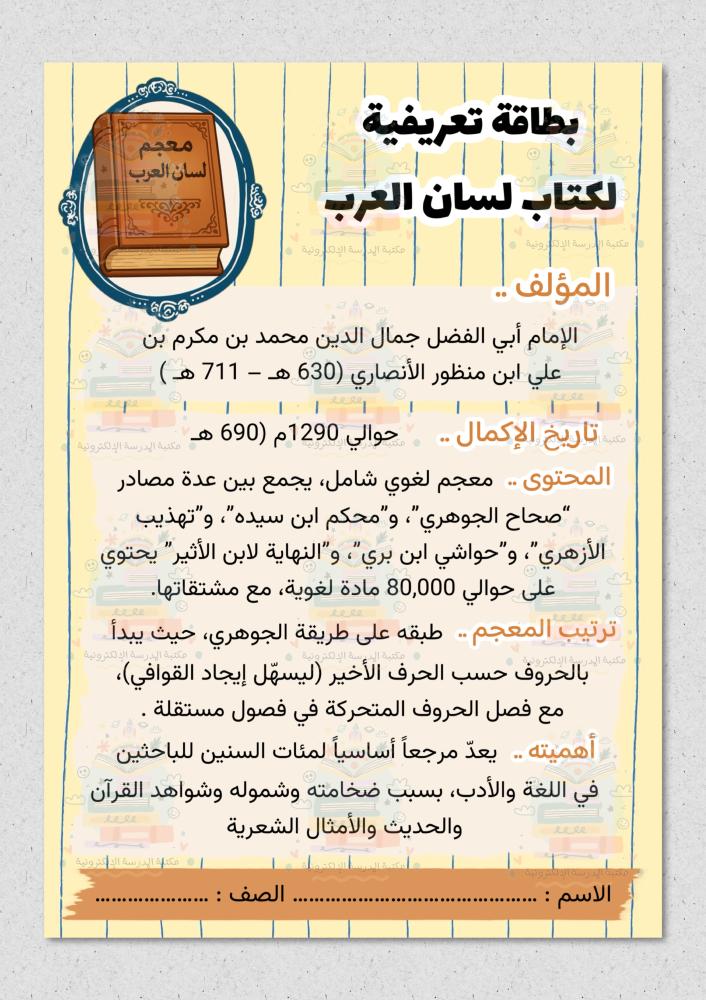 بطاقة تعريفية
لكتاب لسان العرب
معجم
لسان العرب
المؤلف ..
الإمام أبي الفضل جمال الدين محمد بن مكرم بن
علي ابن منظور الأنصاري (630 هـ – 711 هـ )
تاريخ الإكمال .. حوالي 1290م (690 هـ
المحتوى .. معجم لغوي شامل، يجمع بين عدة مصادر
“صحاح الجوهري”، و”محكم ابن سيده”، و”تهذيب
الأزهري”، و”حواشي ابن بري”، و”النهاية لابن الأثير” يحتوي
على حوالي 80,000 مادة لغوية، مع مشتقاتها.
ترتيب المعجم .. طبقه على طريقة الجوهري، حيث يبدأ
بالحروف حسب الحرف الأخير (ليسهّل إيجاد القوافي)،
مع فصل الحروف المتحركة في فصول مستقلة .
أهميته .. يعدّ مرجعاً أساسياً لمئات السنين للباحثين
في اللغة والأدب، بسبب ضخامته وشموله وشواهد القرآن
والحديث والأمثال الشعرية
الاسم : ............................................ الصف : .....................
مكتبة المدرسة الإلكترونية